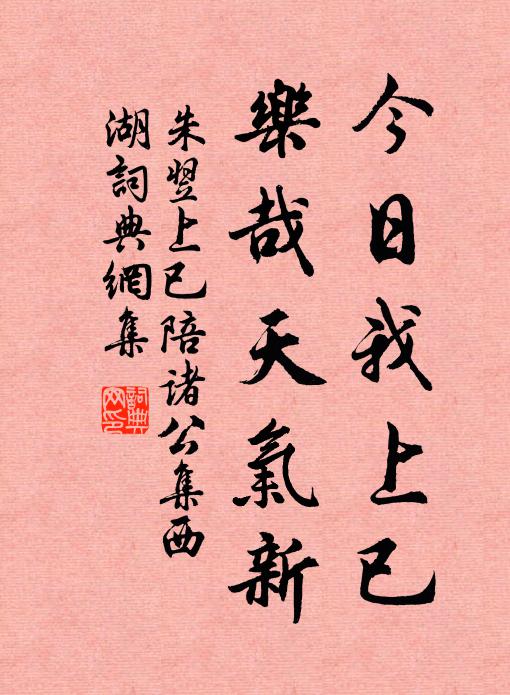 今日我上巳
樂哉天氣新
朱翌上巳陪諸公集西
湖詞典網集
詞典
网印